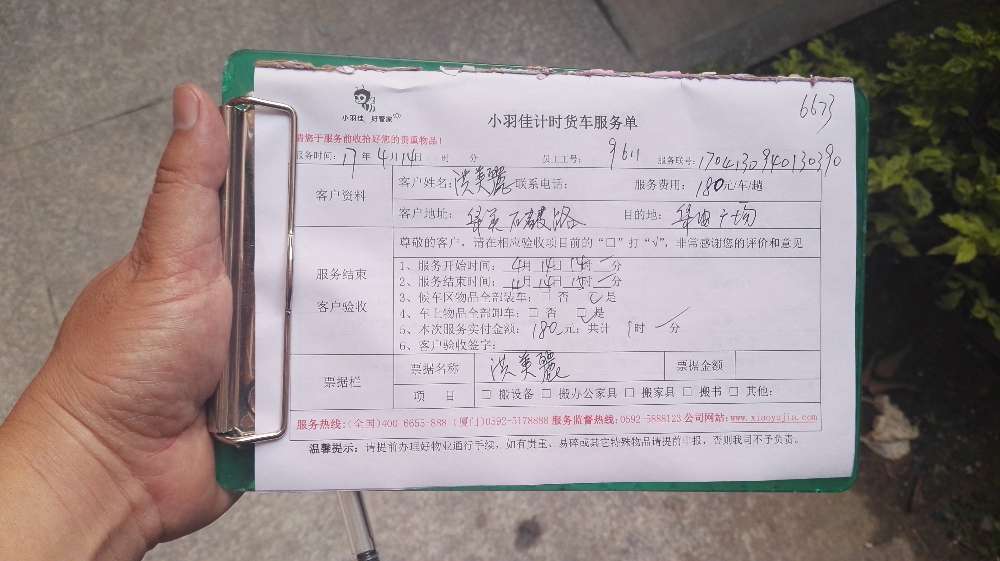 6673
小羽佳 好管家
小羽佳计时货车服务单
请您于服务前收拾好您的贵重物品！
服务时间：17年4月14日 时 分 员工工号： 9611 服务联号：1704130940130390
客户资料 客户姓名：洪美丽 联系电话： 服务费用：180元/车/趟
客户地址： 目的地：
尊敬的客户，请在相应验收项目前的“口”打“√”，非常感谢您的评价和意见
服务结束
客户验收
1、服务开始时间：4月14日14时一分
2、服务结束时间：4月14日15时一分
3、候车区物品全部装车：□ 否 ☑ 是
4、车上物品全部卸车：□ 否 ☑ 是
5、本次服务实付金额：180元；共计 1时 一分
6、客户验收签字：
票据栏 票据名称 洪美丽 票据金额
项 目 □ 搬设备 □ 搬办公家具 □ 搬家具 □ 搬书 □ 其他：
服务热线：(全国)400-6655-888 (厦门)0592-5178888 服务监督热线：0592-5888123 公司网站：www.xiaoyujia.com
温馨提示：请提前办理好物业通行手续，如有贵重、易碎或其它特殊物品请提前申报，否则我司不予负责。